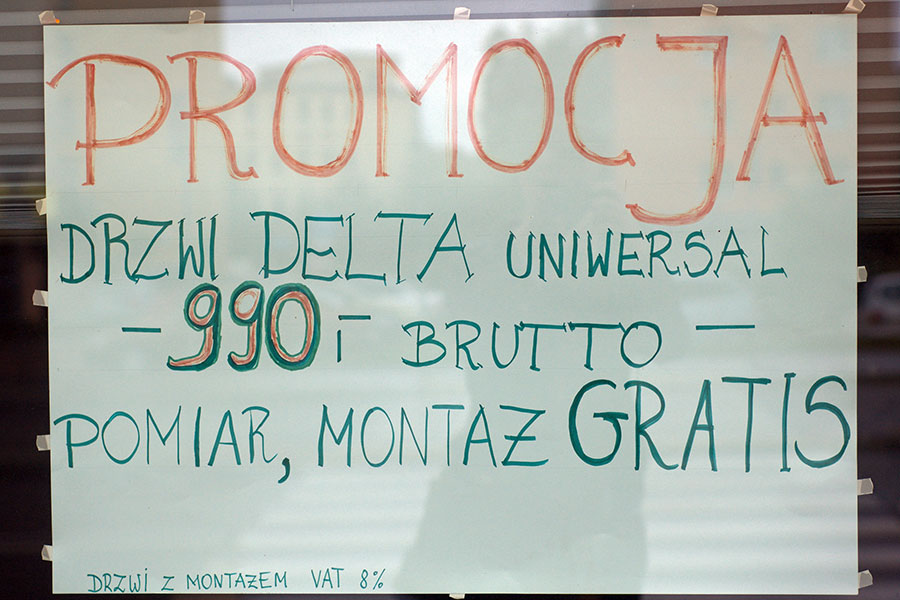 PROMOCJA
DRZWI DELTA UNIWERSAL
– 990 BRUTTO –
POMIAR, MONTAŻ GRATIS
DRZWI Z MONTAŻEM VAT 8%